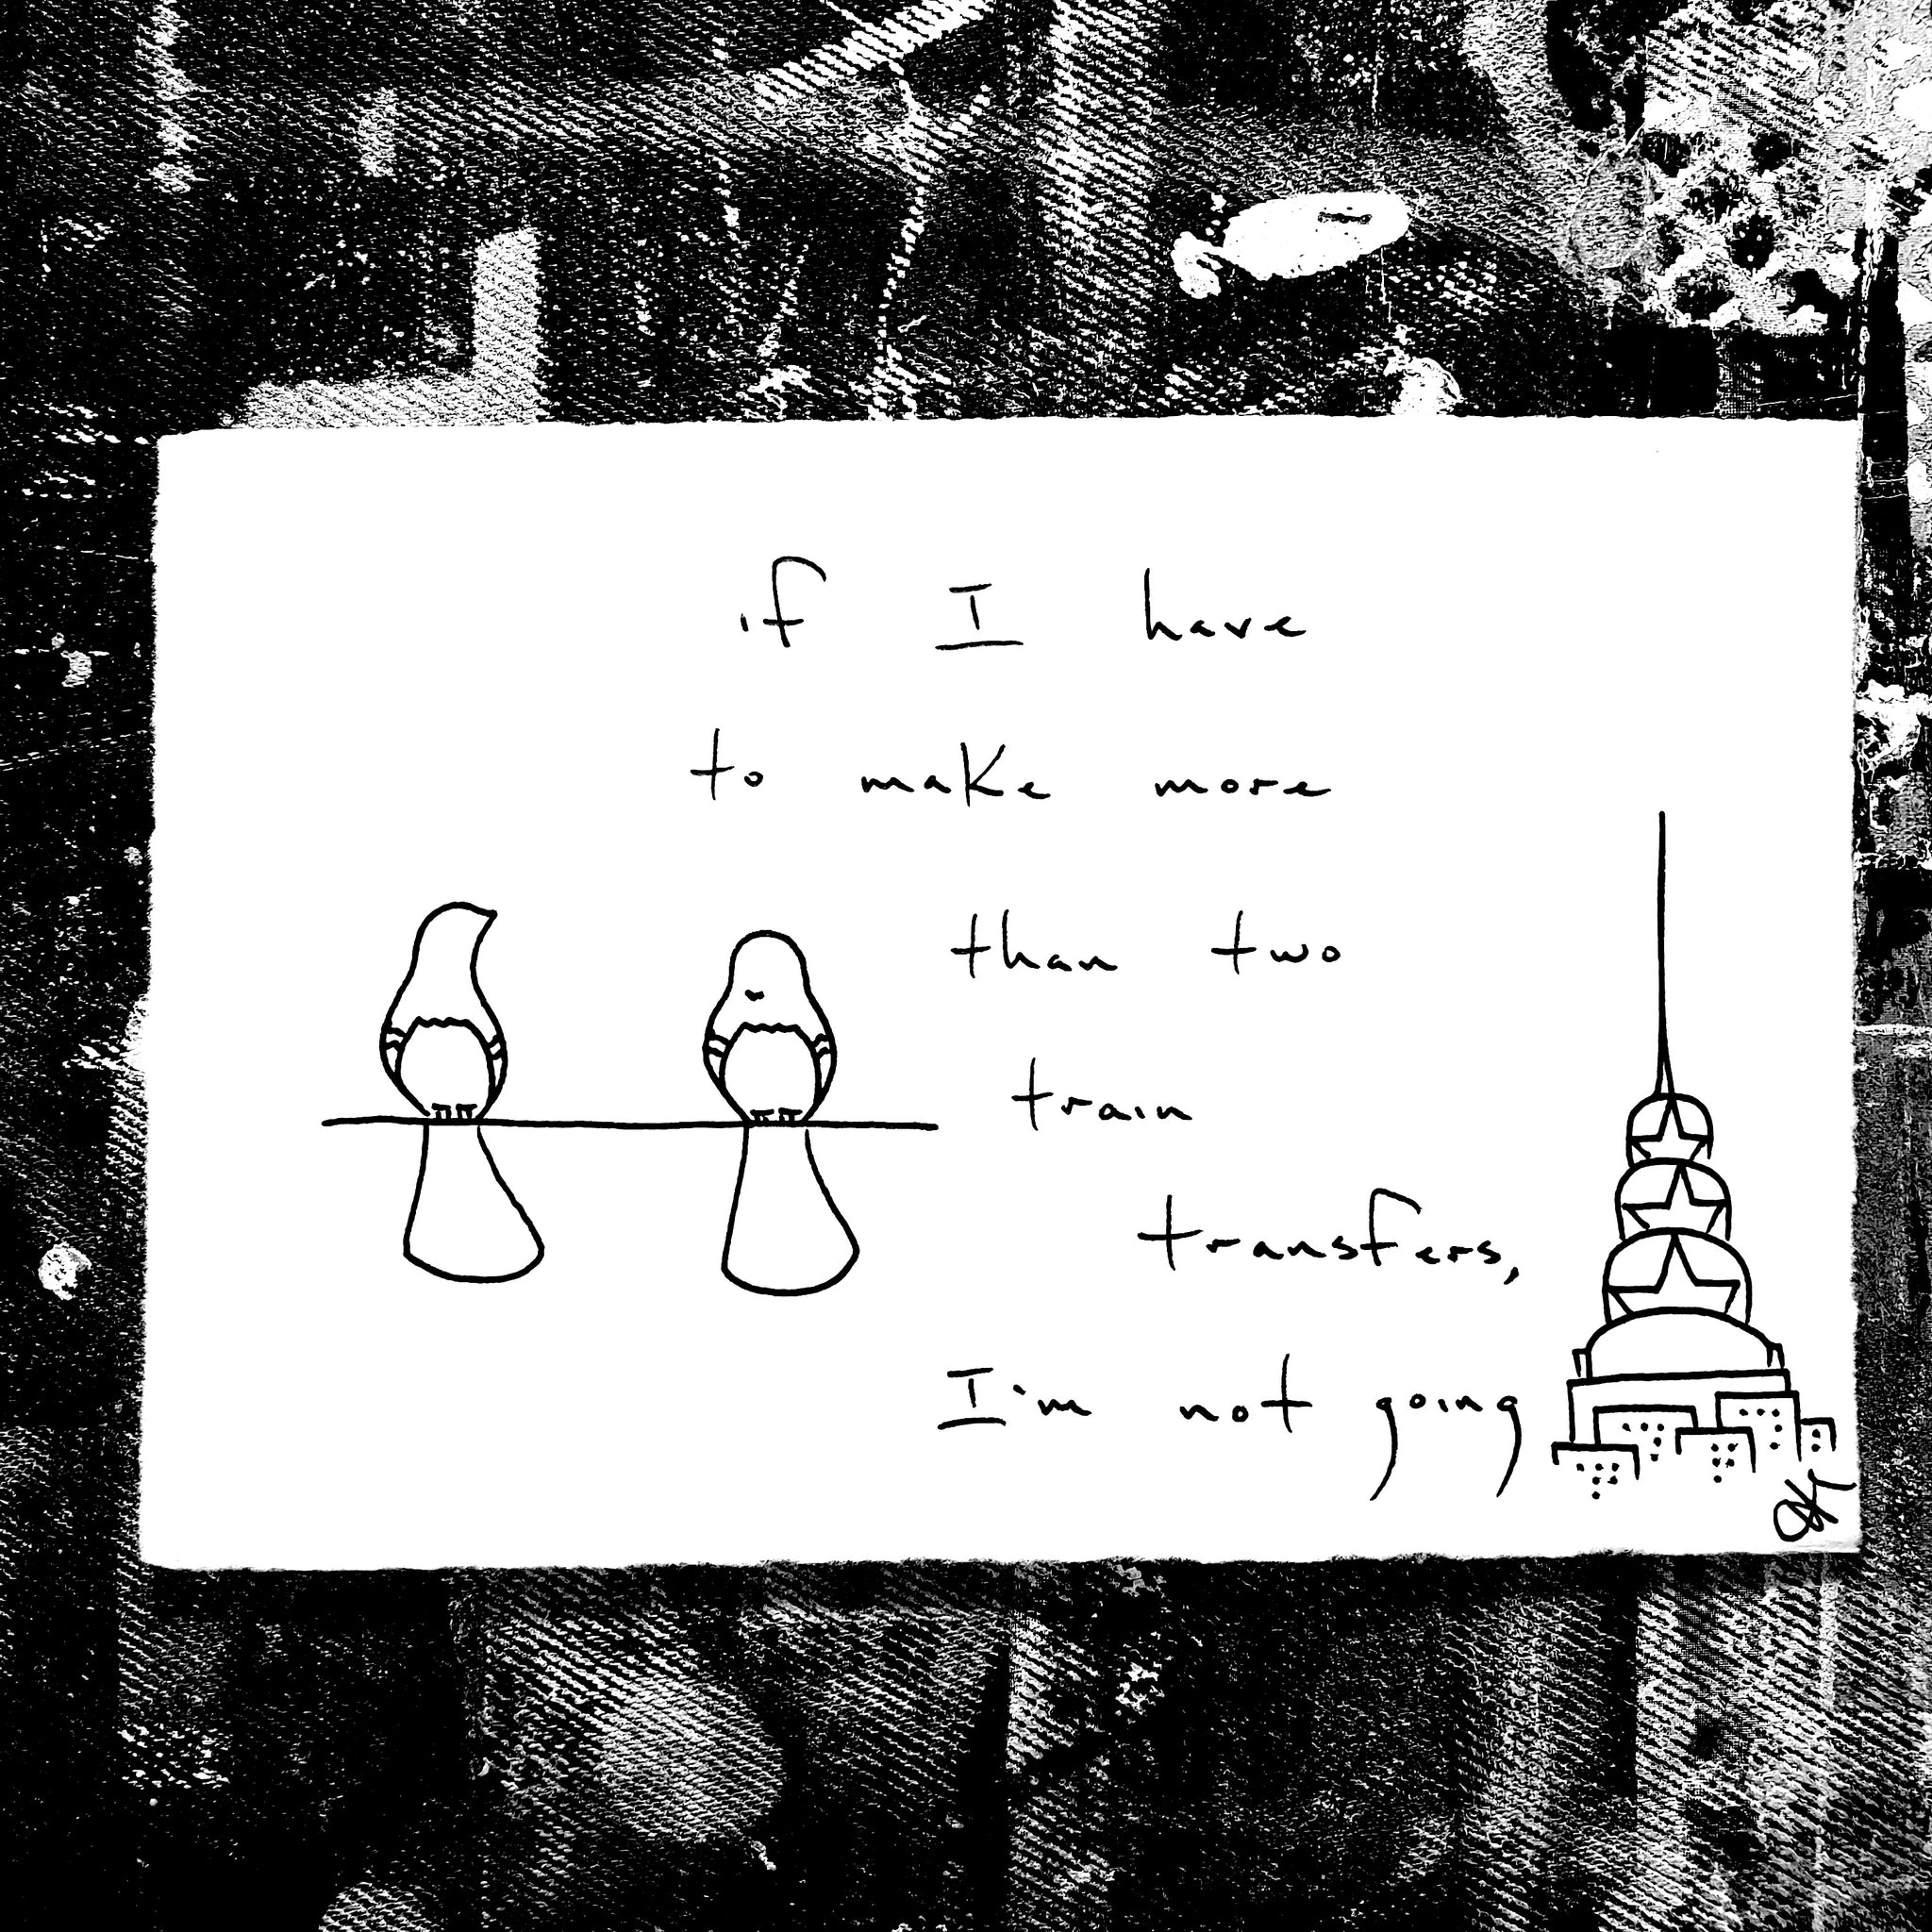 if I have
to make more
than two
train
transfers,
I'm not going